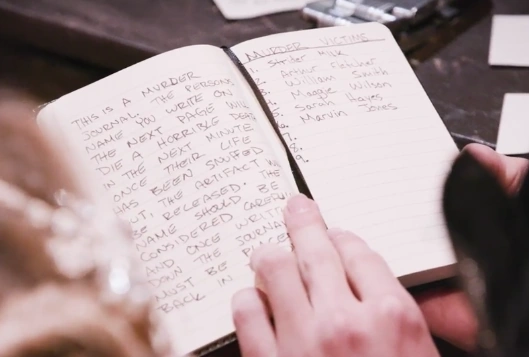 THIS IS A MURDER
JOURNAL. THE PERSONS
NAME YOU WRITE ON
THE NEXT PAGE WILL
DIE A HORRIBLE DEATH
IN THE NEXT MINUTE
ONCE THEIR LIFE
HAS BEEN SNUFFED
OUT, THE ARTIFACT
BE RELEASED. THE
NAME SHOULD BE
CONSIDERED
AND ONCE
DOWN THE JOURNAL
MUST BE
BACK IN
MURDER VICTIMS
1. Milk
2. Arthur Fletcher
3. William Smith
4. Maggie Wilson
5. Sarah Hayes
6. Marvin Jones
7.
8.
9.